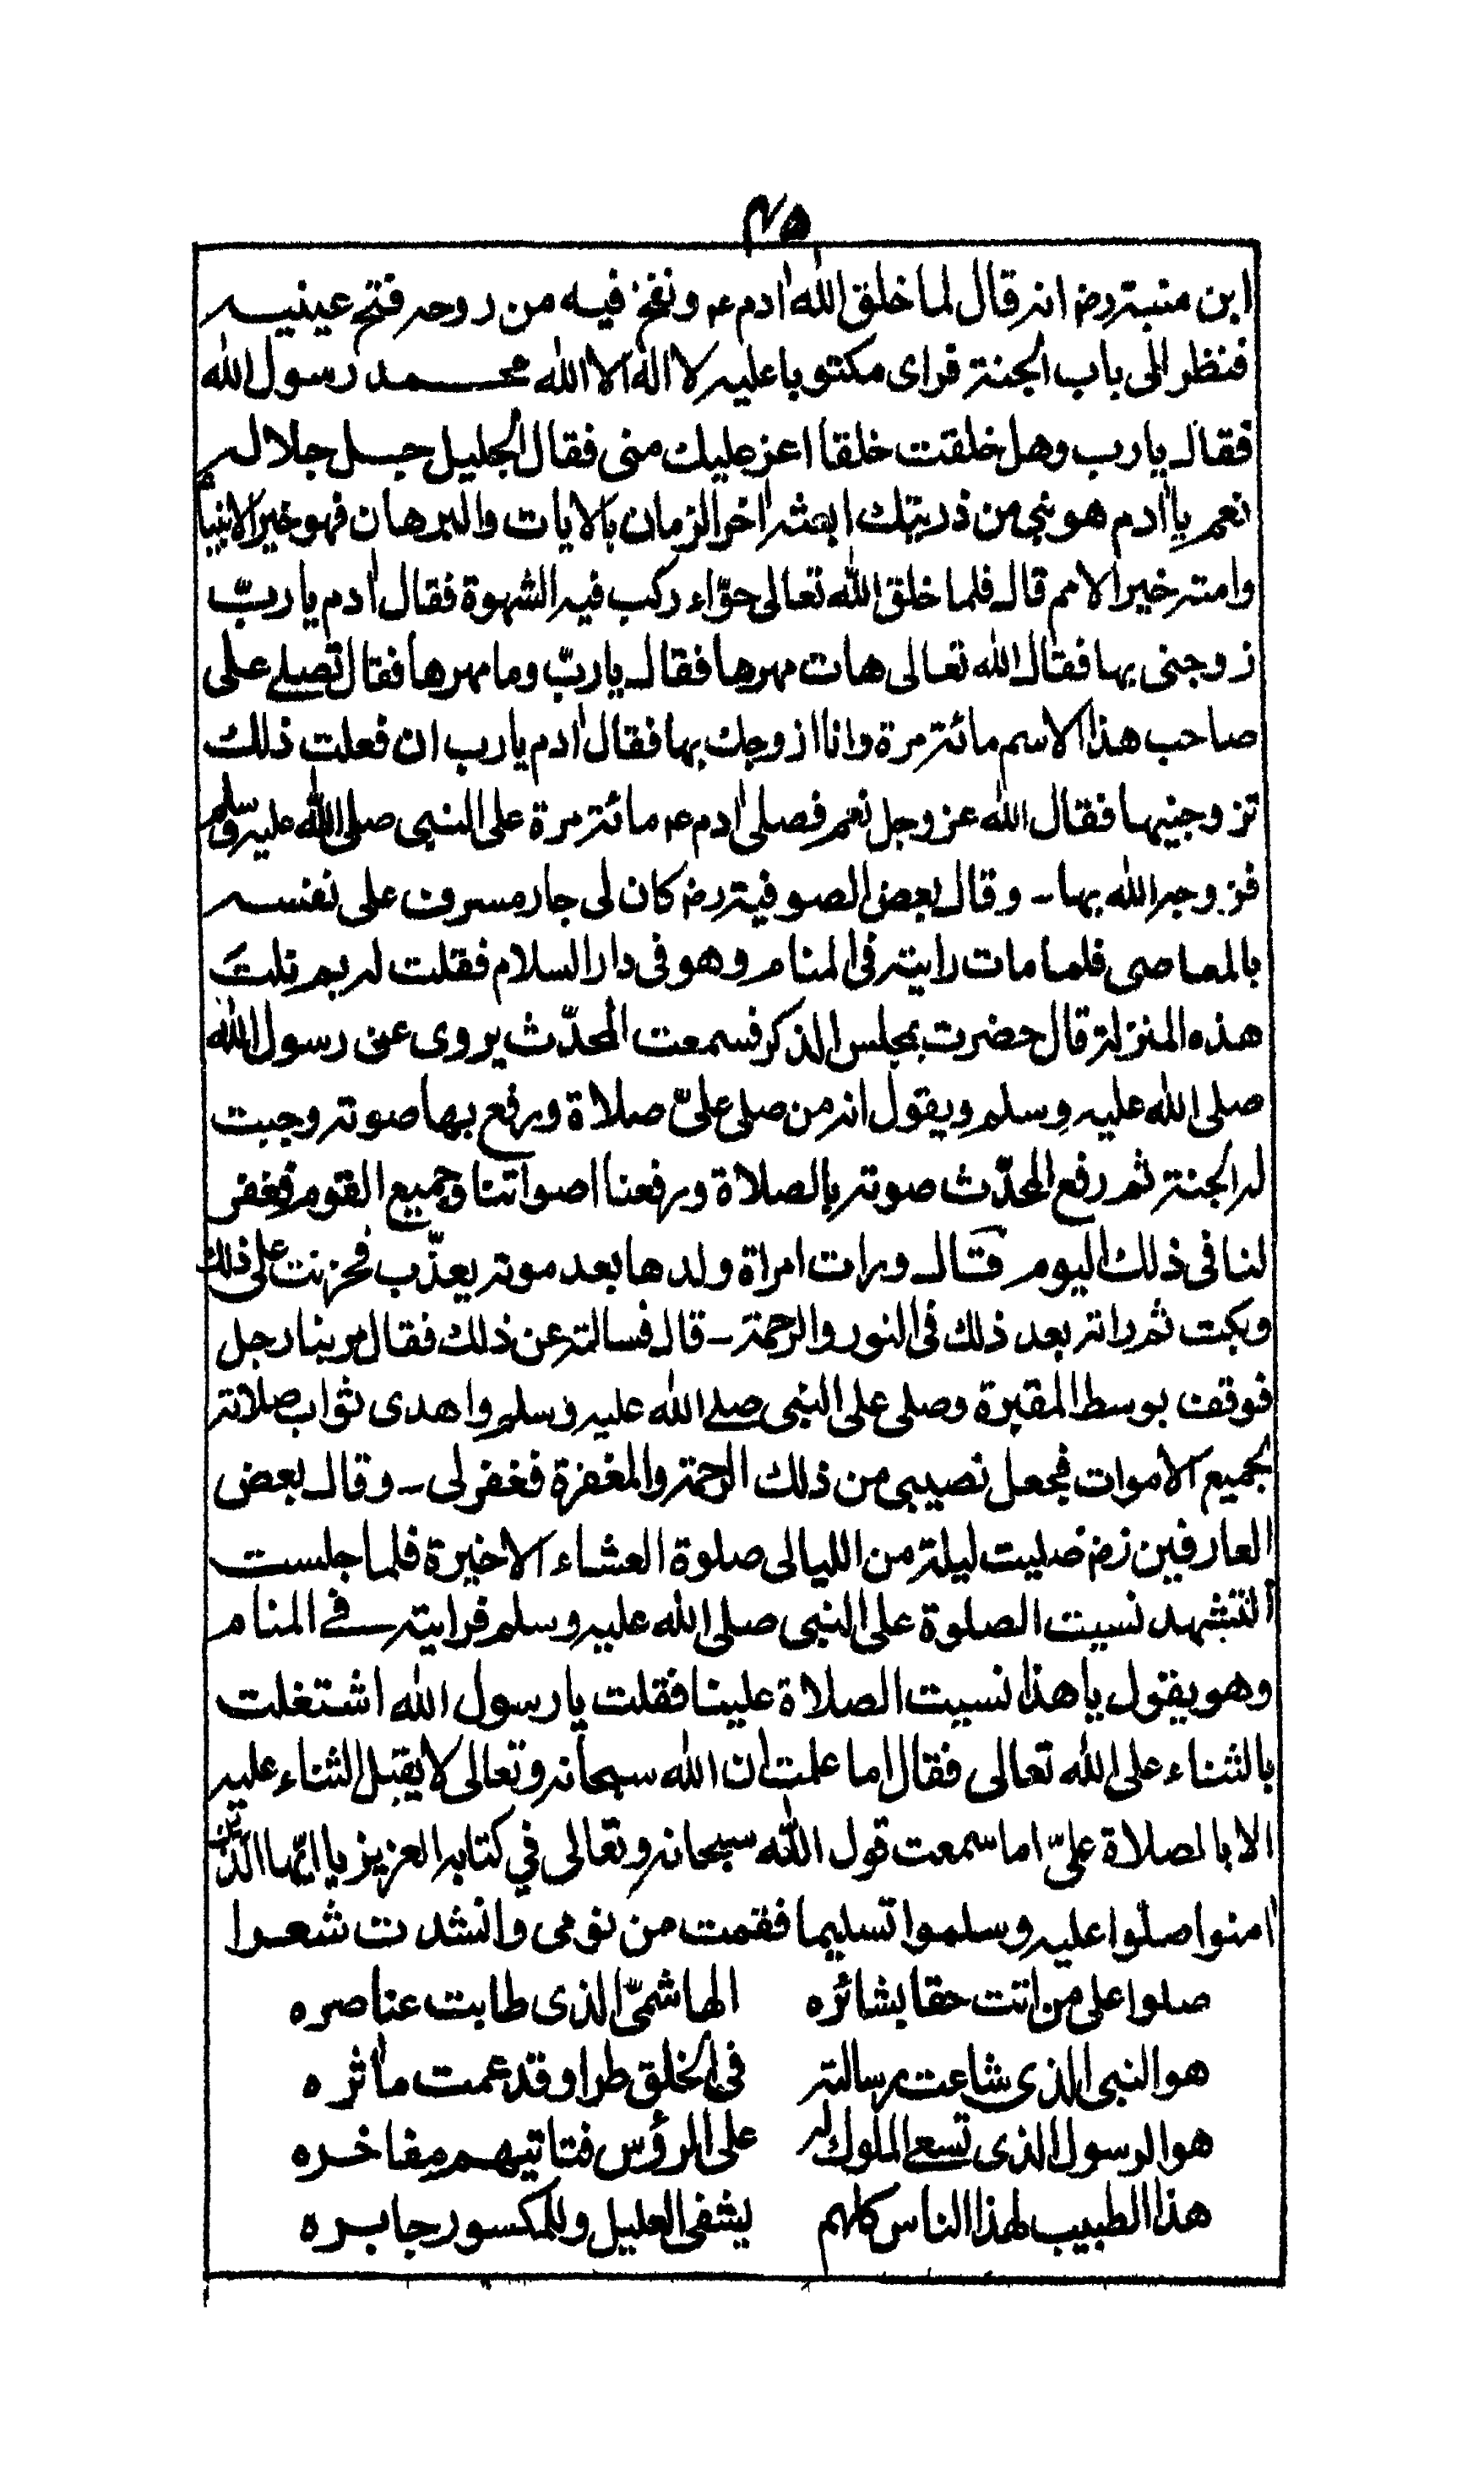 ٢٥
ابن منبه رضـ انه قال لما خلق الله اٰدم عـ ونفخ فيه من روحه فتح عينيه
فنظر الى باب الجنة فراى مكتوبا عليه لا اله الا الله محمد رسول الله
فقال يارب وهل خلقت خلقا اعز عليك منى فقال الجليل جل جلاله
نعم يا اٰدم هو نبى من ذريتك ابعثه اٰخر الزمان بالايات والبرهان فهو خير الانبياء
وامته خير الامم قال فلما خلق الله تعالى حوّاء ركب فيه الشهوة فقال اٰدم يا ربّ
زوجنى بها فقال الله تعالى هات مهرها فقال ياربّ وما مهرها فقال تصلى على
صاحب هذا الاسم مائة مرة وانا ازوجك بها فقال اٰدم يارب ان فعلت ذلك
تزوجنيها فقال الله عز وجل نعم فصلى اٰدم عـ مائة مرة على النبى صلى الله عليه وسلم
فزوجه الله بها - وقال بعض الصوفية رضـ كان لى جار مسرف على نفسه
بالمعاصى فلما مات رايته فى المنام وهو فى دار السلام فقلت له بم نلت
هذه المنزلة قال حضرت بمجلس الذكر فسمعت المحدّث يروى عن رسول الله
صلى الله عليه وسلم ويقول انه من صلى علىّ صلاة ورفع بها صوته وجبت
له الجنة ثم رفع المحدّث صوته بالصلاة ورفعنا اصواتنا وجميع القوم فغفر
لنا فى ذلك اليوم قال ورات امراة ولدها بعد موته يعذّب فحزنت على ذلك
وبكت ثم راته بعد ذلك فى النور والرحمة - قال فسالته عن ذلك فقال مر بنا رجل
فوقف بوسط المقبرة وصلى على النبى صلى الله عليه وسلم واهدى ثواب صلاته
لجميع الاموات فجعل نصيبى من ذلك الرحمة والمغفرة فغفر لى - وقال بعض
العارفين رضـ صليت ليلة من الليالى صلوة العشاء الاخيرة فلما جلست
التشهد نسيت الصلوة على النبى صلى الله عليه وسلم فرايته فى المنام
وهو يقول يا هذا نسيت الصلاة علينا فقلت يا رسول الله اشتغلت
بالثناء على الله تعالى فقال اما علمت ان الله سبحانه وتعالى لا يقبل الثناء عليه
الا بالصلاة علىّ اما سمعت قول الله سبحانه وتعالى في كتابه العزيز يا ايّها الذين
اٰمنوا صلّوا عليه وسلموا تسليما فقمت من نومى وانشدت شعرا
صلوا على من اتت حقا بشائره الهاشمىّ الذى طابت عناصره
هو النبى الذى شاعت رسالته فى الخلق طرا وقد عمت ماٰثره
هو الرسول الذى تسعى الملوك له على الرؤس فتاتيهم مفاخره
هذا الطبيب لهذا الناس كلهم يشفى العليل وللمكسور جابره